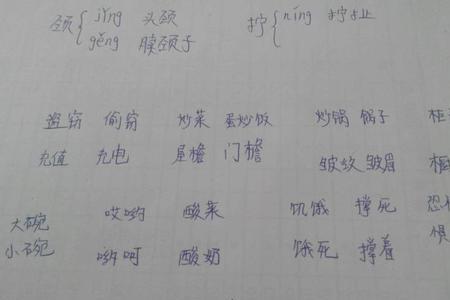 颈 { jǐng 头颈 拧 { níng 拧
gěng 脖颈子
盗窃 偷窃 炒菜 蛋炒饭 炒锅 锅子 柜
充值 充电 屋檐 门檐 皱纹 皱眉
大碗 哎哟 酸菜 饥饿 撑死 恐
小碗 哟呵 酸奶 饿死 撑着 惧